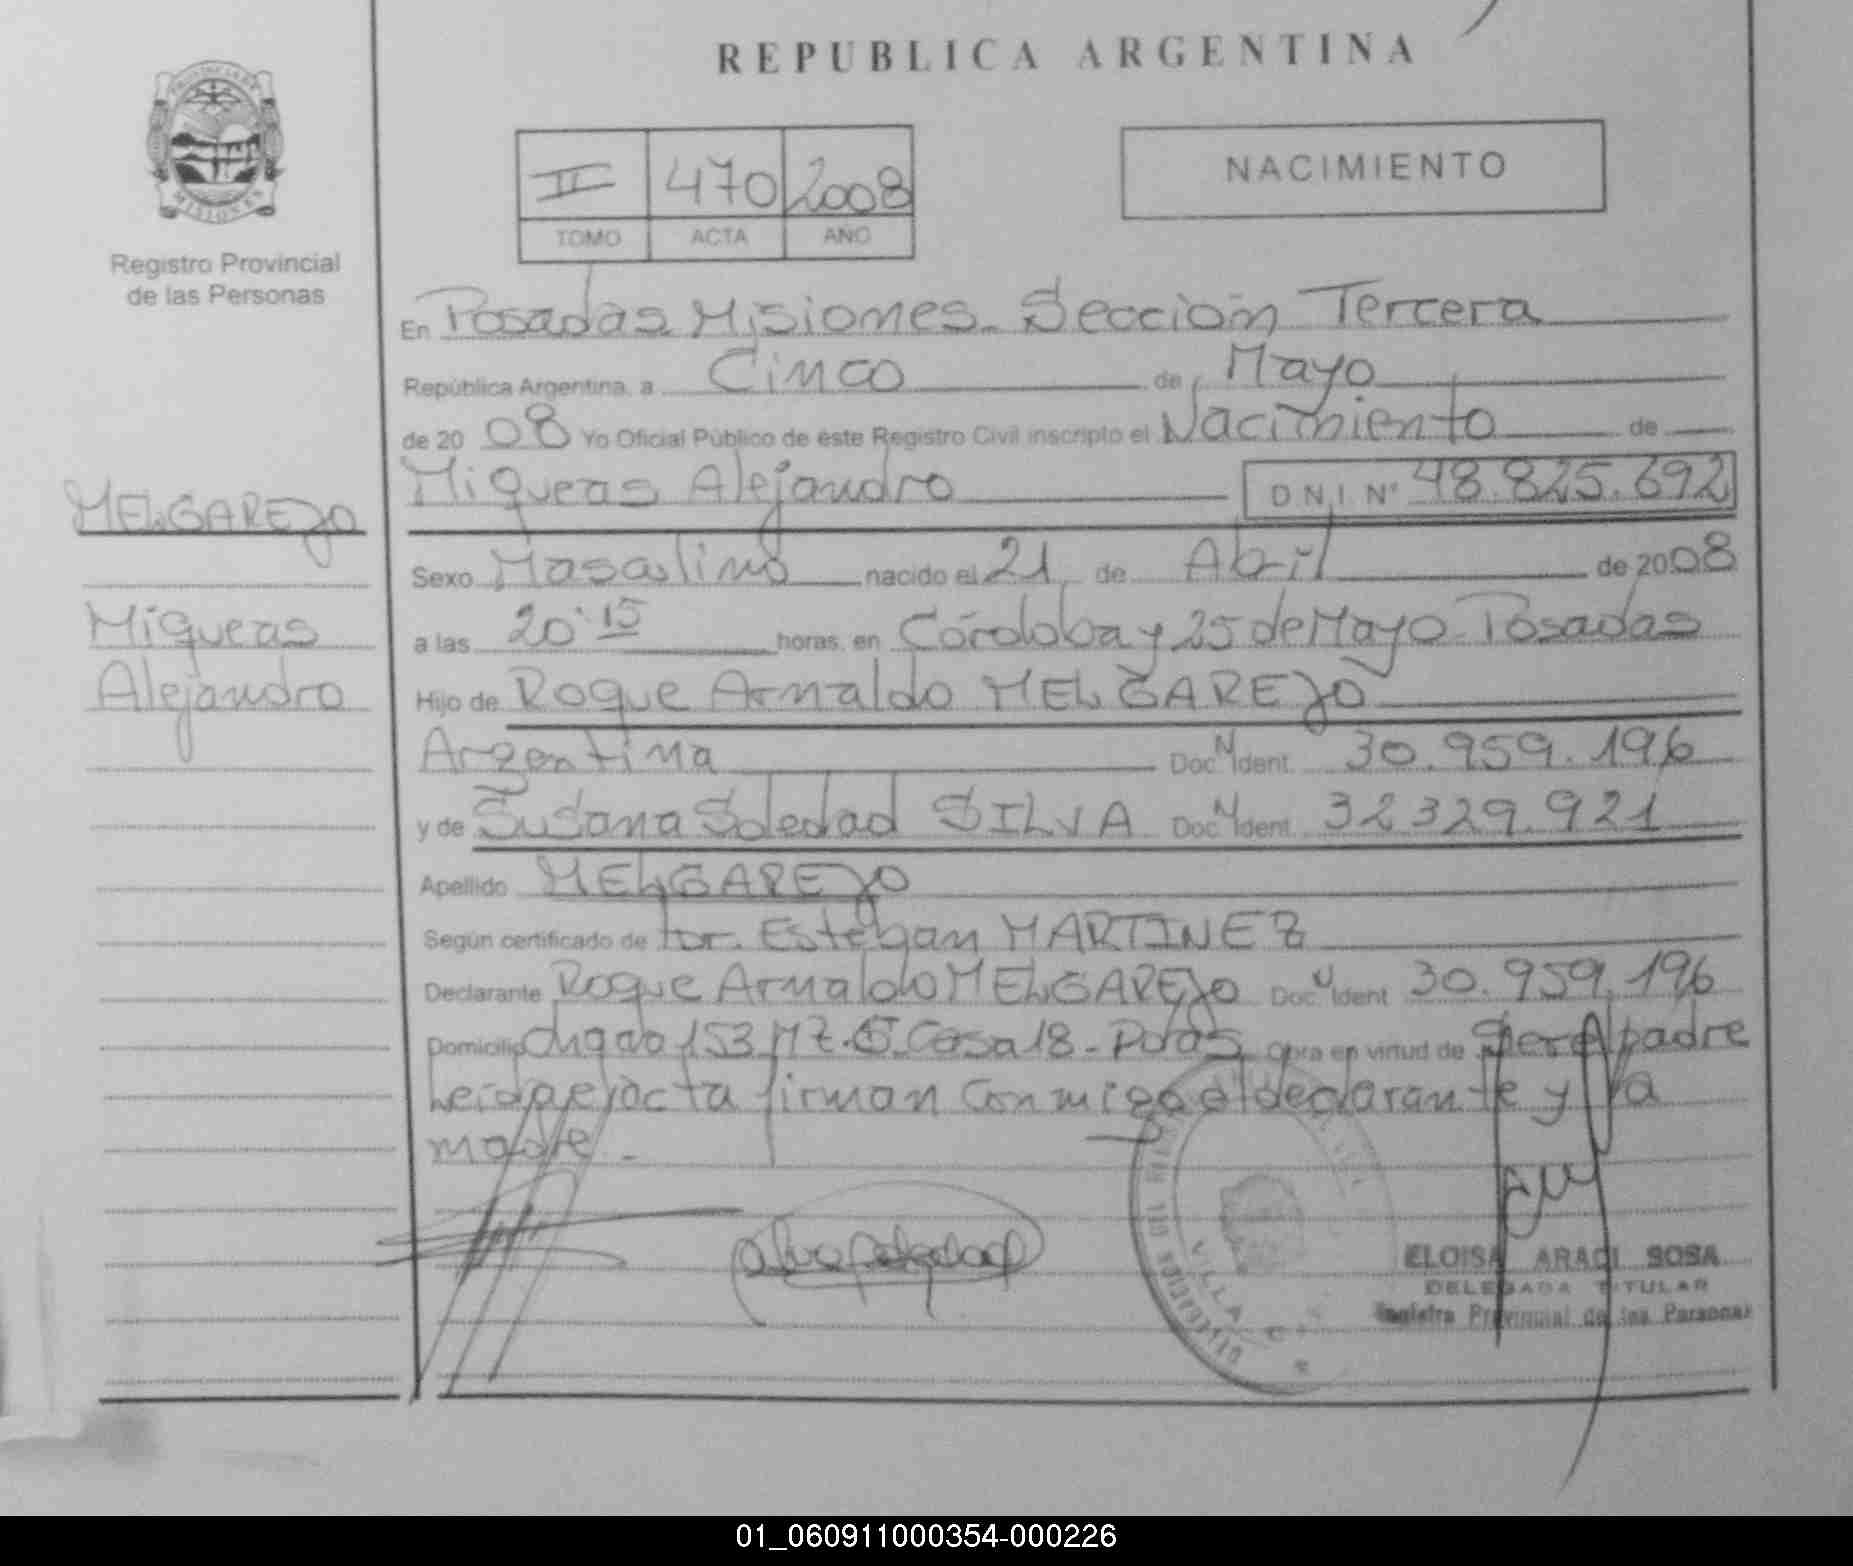 REPUBLICA ARGENTINA
PROVINCIA DE
MISIONES
Registro Provincial
de las Personas
II 470 2008
TOMO ACTA AÑO
NACIMIENTO
En Posadas Misiones. Sección Tercera
República Argentina, a Cinco de Mayo
de 2008 Yo Oficial Público de éste Registro Civil inscripto el Nacimiento de
Miqueas Alejandro D.N.I. Nº 48.825.692
MELGAREJO
Sexo Masculino nacido el 21 de Abril de 2008
Miqueas
Alejandro
a las 20:15 horas, en Córdoba y 25 de Mayo Posadas
Hijo de Roque Arnaldo MELGAREJO
Argentina Doc. N Ident. 30.959.196
y de Susana Soledad SILVA Doc. N Ident. 32329.921
Apellido MELGAREJO
Según certificado de Esteban MARTINEZ
Declarante Roque Arnaldo MELGAREJO Doc. N Ident 30.959.196
Domicilio 153 MZ. Casa 18 - Pdas Obra en virtud de ser el padre
Leida el acta firman conmigo el declarante y la
madre -
VILLA
ELOISA ARACI SOSA
DELEGADA TITULAR
Registro Provincial de las Personas
01_060911000354-000226